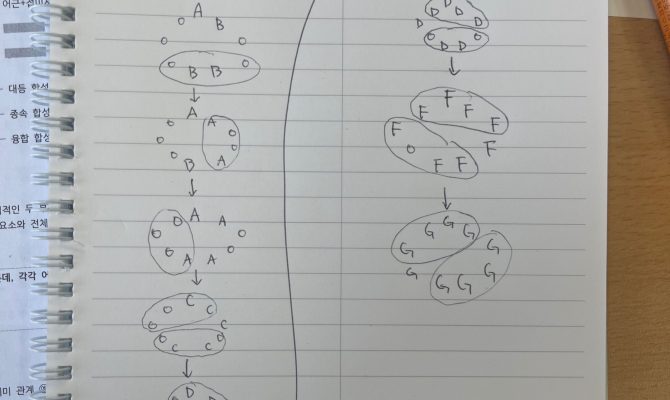 어근+접미사
대등 합성
종속 합성
융합 합성
요소와 전체
각각 어
미 관계
A
B
B B
A
A
B A
A A
A A
C
C
C
C C
D
D D
D D D
D D
F
F F
F F
F
F F
G G
G G
G G
G G
G G